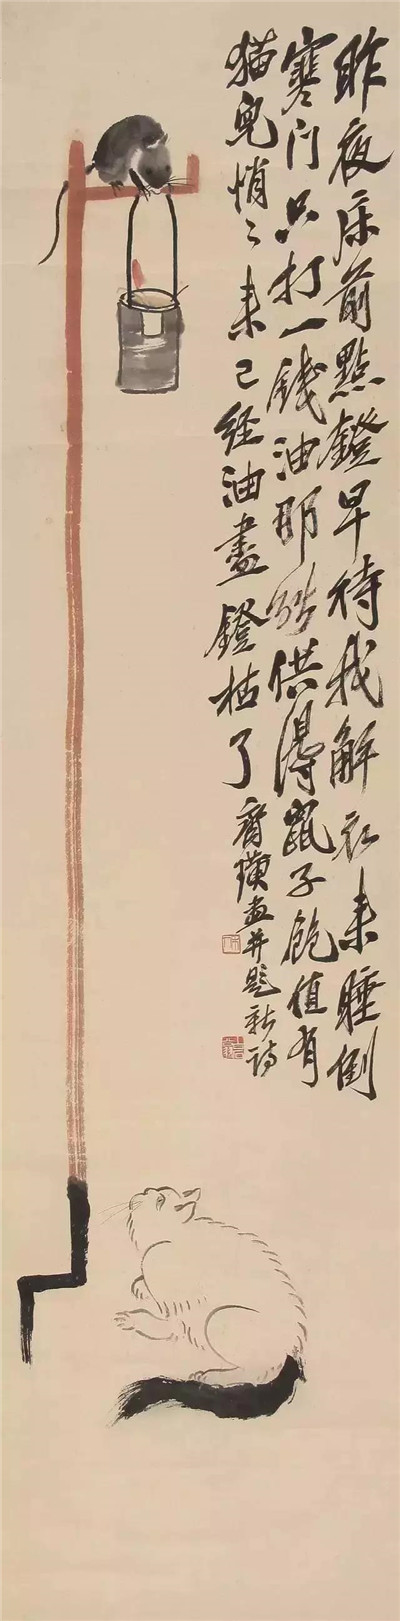 昨夜床前點鐙早待我解衣未睡倒
寒门只打一錢油那能供得鼠子飽值有
猫兒悄〻未已经油盡鐙枯了
齊璜畫并題新詩